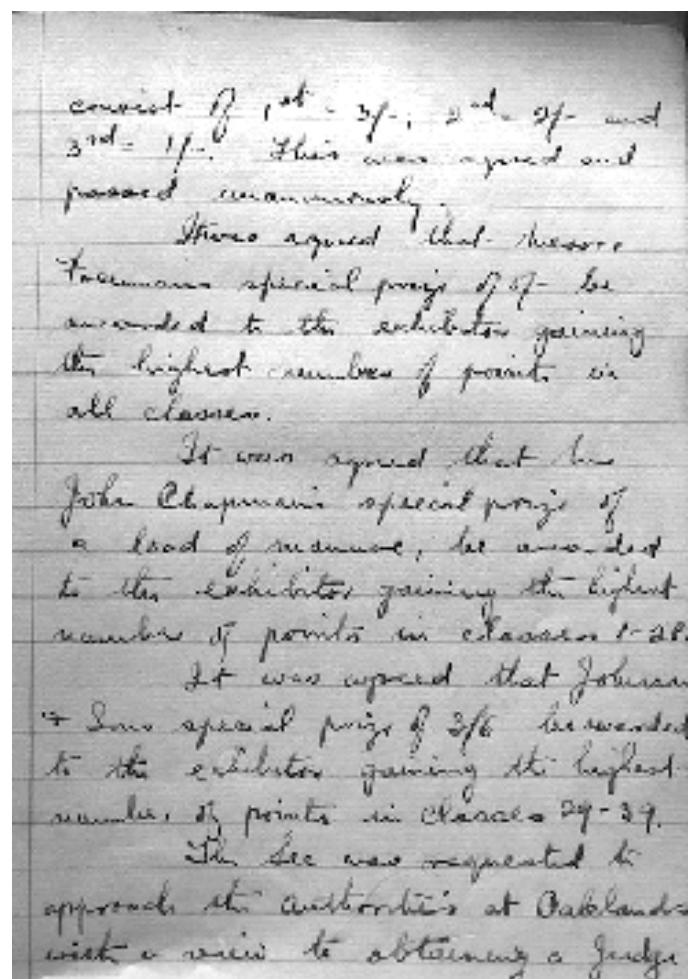 consist of 1st - 3/-, 2nd - 2/- and
3rd - 1/-. This was agreed and
passed unanimously.
It was agreed that Messrs
Freemans special prize of 5/- be
awarded to the exhibitor gaining
the highest number of points in
all classes.
It was agreed that
John Chapman's special prize of
a load of manure, be awarded
to the exhibitor gaining the highest
number of points in classes 1-28.
It was agreed that Johnson
& Sons special prize of 3/6 be awarded
to the exhibitor gaining the highest
number of points in classes 29-39.
The Sec was requested to
approach the Authorities at Oaklands
with a view to obtaining a Judge